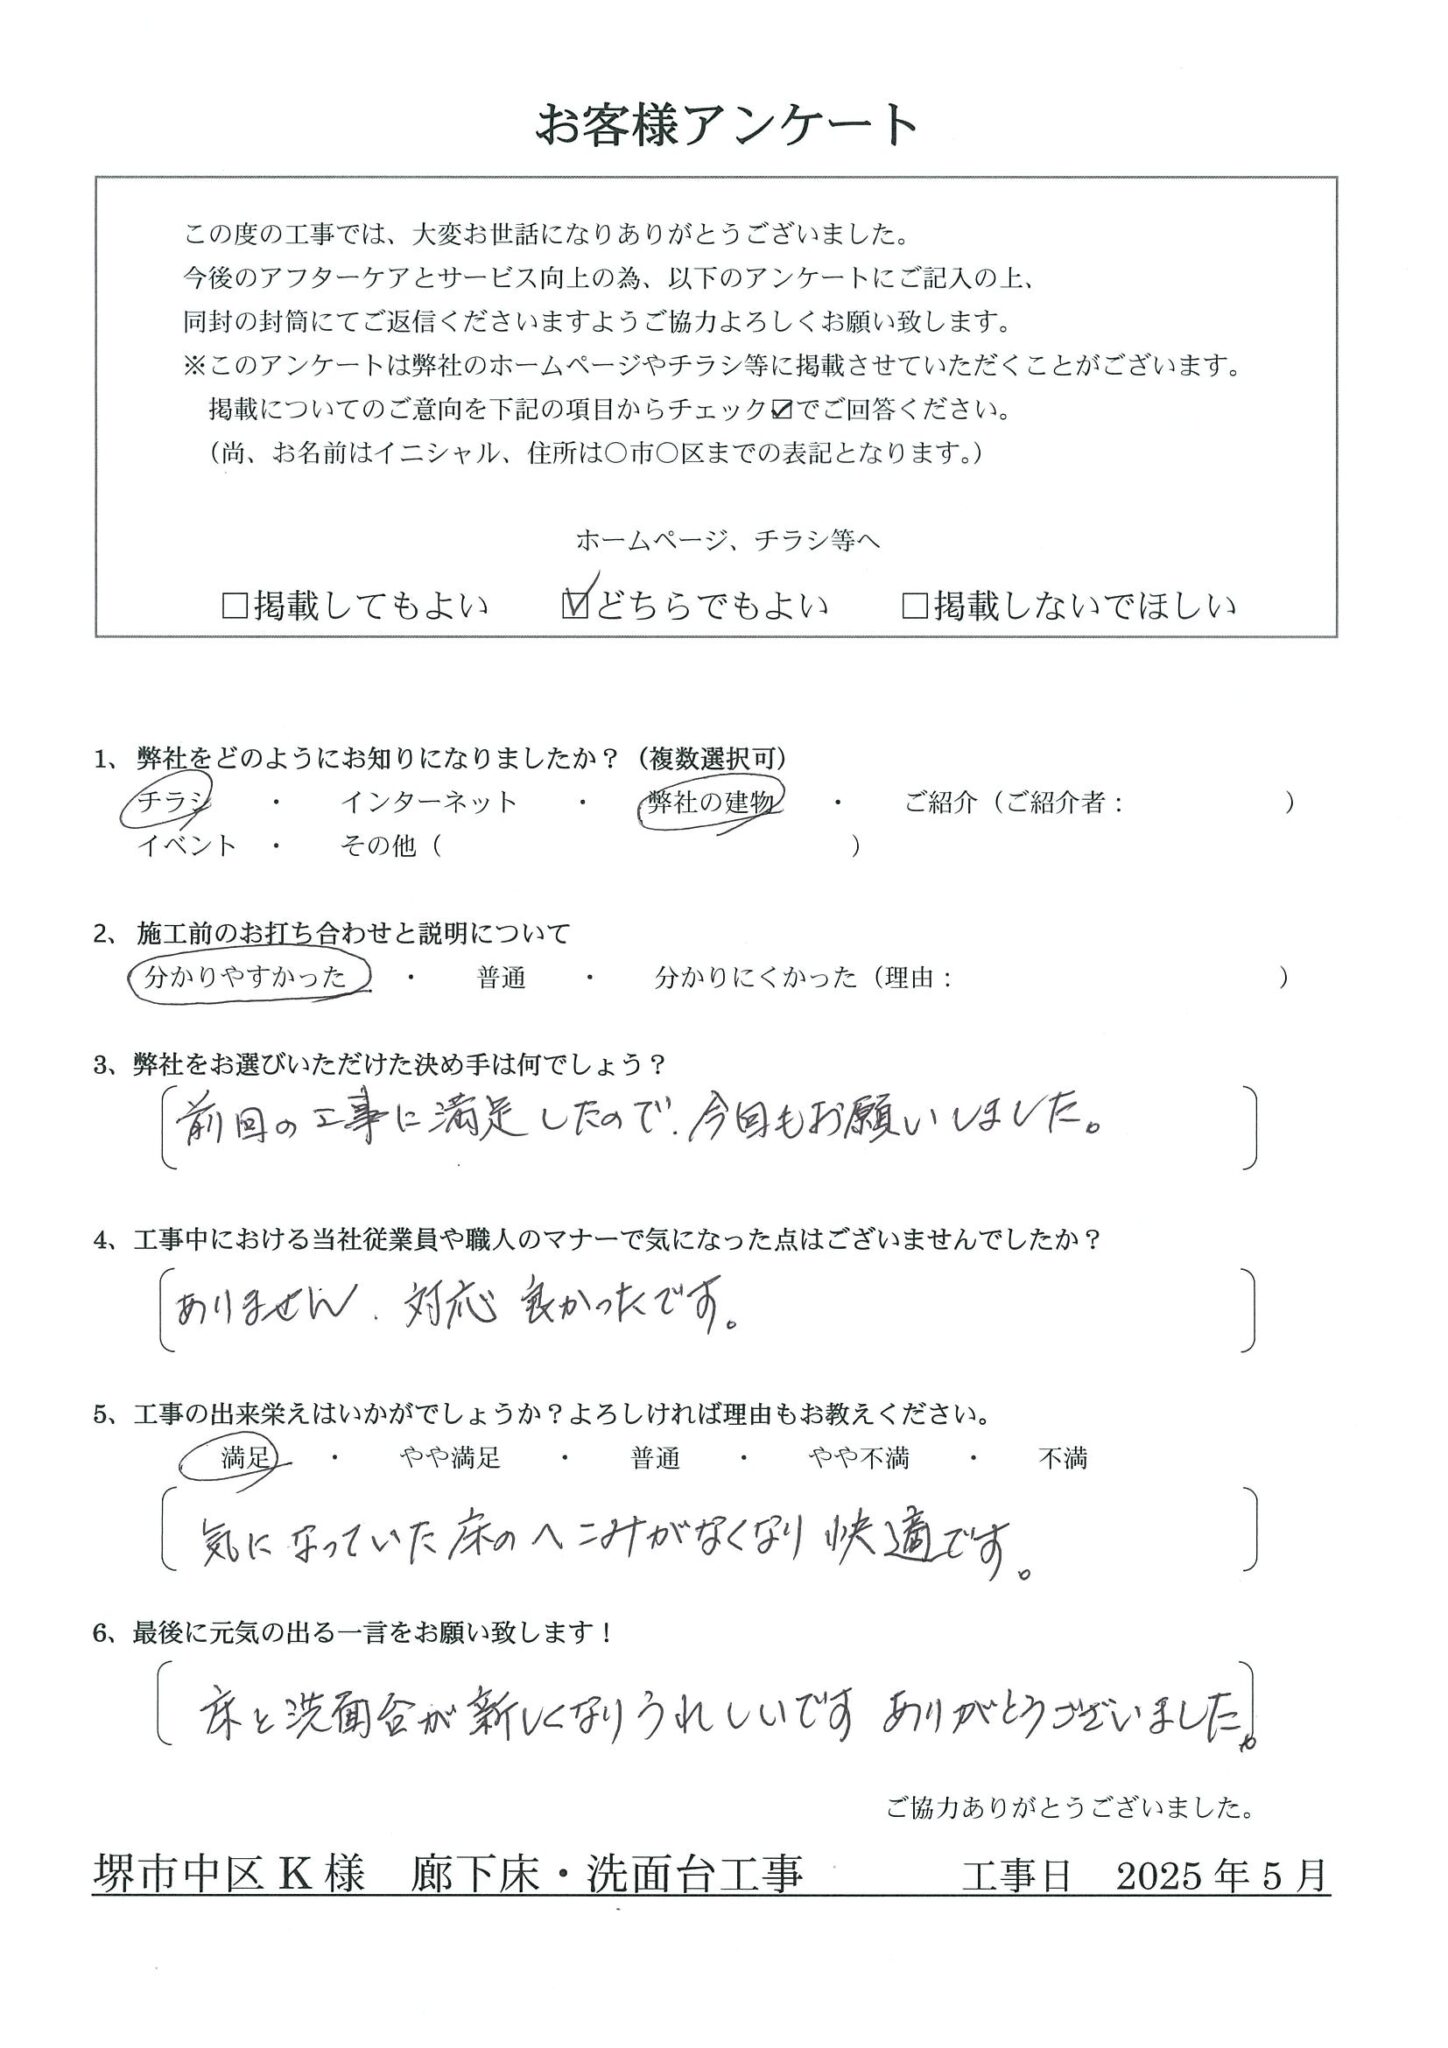 お客様アンケート
この度の工事では、大変お世話になりありがとうございました。
今後のアフターケアとサービス向上の為、以下のアンケートにご記入の上、
同封の封筒にてご返信くださいますようご協力よろしくお願い致します。
※このアンケートは弊社のホームページやチラシ等に掲載させていただくことがございます。
掲載についてのご意向を下記の項目からチェック☑でご回答ください。
(尚、お名前はイニシャル、住所は〇市〇区までの表記となります。)
ホームページ、チラシ等へ
□掲載してもよい ☑どちらでもよい □掲載しないでほしい
1、弊社をどのようにお知りになりましたか？(複数選択可)
チラシ ・ インターネット ・ 弊社の建物 ・ ご紹介(ご紹介者： )
イベント ・ その他( )
2、施工前のお打ち合わせと説明について
分かりやすかった ・ 普通 ・ 分かりにくかった(理由： )
3、弊社をお選びいただけた決め手は何でしょう？
前回の工事に満足したので、今回もお願いしました。
4、工事中における当社従業員や職人のマナーで気になった点はございませんでしたか？
ありません、対応良かったです。
5、工事の出来栄えはいかがでしょうか？よろしければ理由もお教えください。
満足 ・ やや満足 ・ 普通 ・ やや不満 ・ 不満
気になっていた床のへこみがなくなり快適です。
6、最後に元気の出る一言をお願い致します！
床と洗面台が新しくなりうれしいです ありがとうございました。
ご協力ありがとうございました。
堺市中区K様 廊下床・洗面台工事 工事日 2025年5月